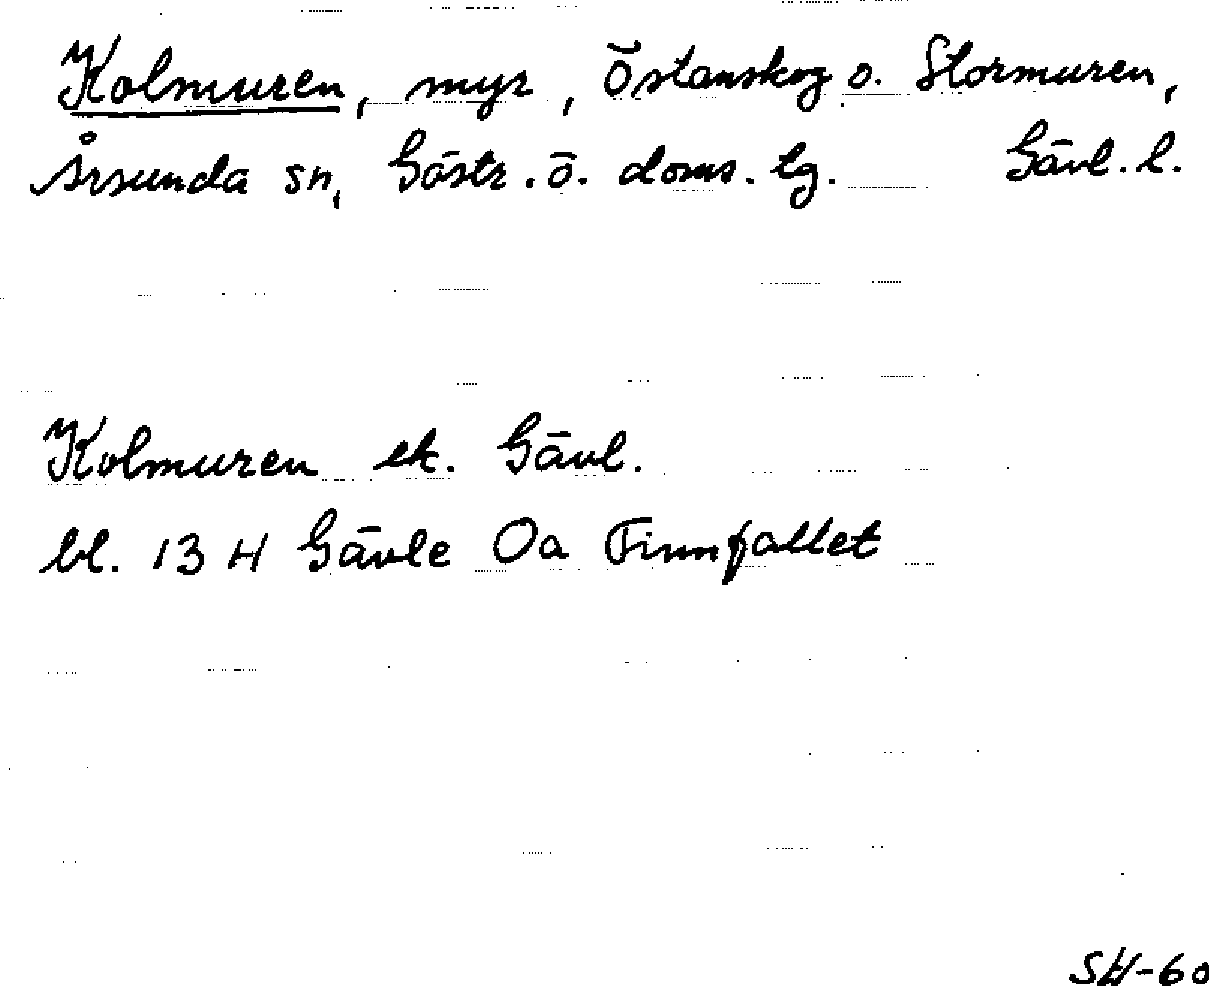 Kolmuren, myr, Östanskog o. Stormuren,
Årsunda sn, Gästr. ö. doms. lg. Gävl. l.
Kolmuren ek. Gävl.
bl. 13 H Gävle Oa Finnfallet
SW-60